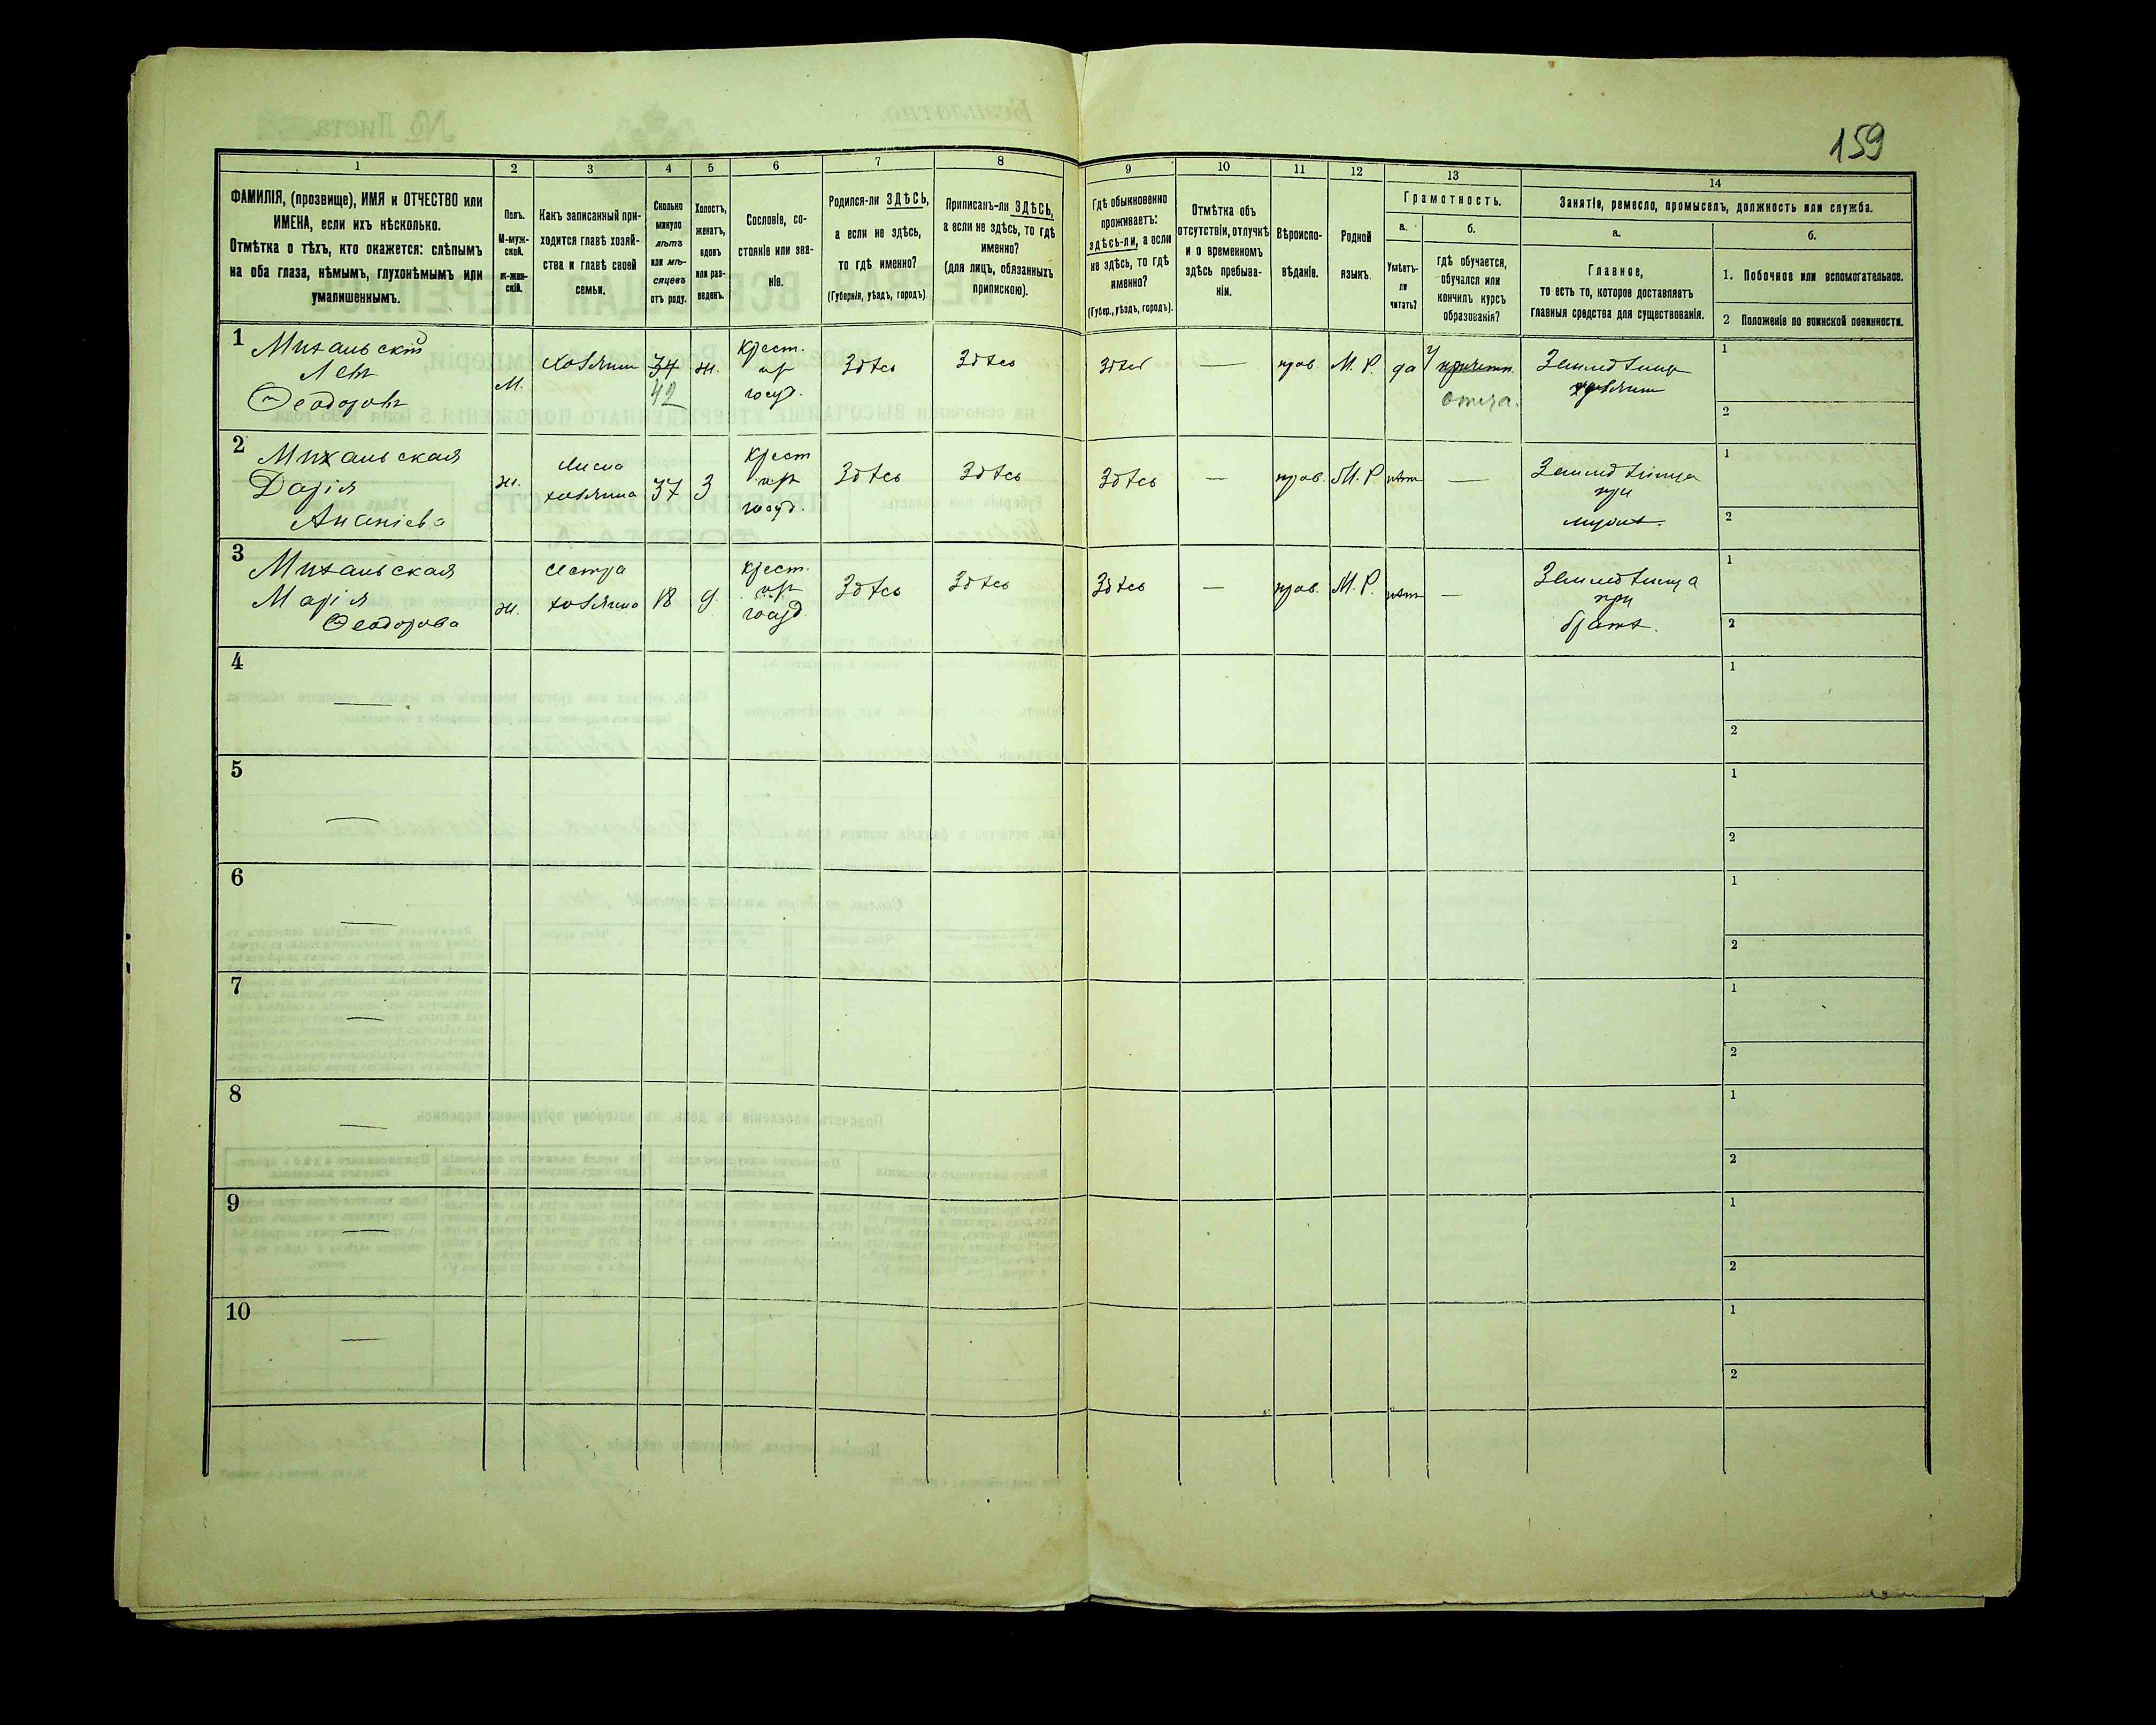 159
1
2
3
4
5
6
7
8
9
10
11
12
13
14
ФАМИЛІЯ, (прозвище), ИМЯ и ОТЧЕСТВО или
ИМЕНА, если ихъ нѣсколько.
Отмѣтка о тѣхъ, кто окажется: слѣпымъ
на оба глаза, нѣмымъ, глухонѣмымъ или
умалишеннымъ.
Полъ.
М-муж-
ской.
Ж-жен-
скій.
Какъ записанный при-
ходится главѣ хозяй-
ства и главѣ своей
семьи.
Сколько
минуло
лѣтъ
или мѣ-
сяцевъ
отъ роду.
Холостъ,
женатъ,
вдовъ
или раз-
веденъ.
Сословіе, со-
стояніе или зва-
ніе.
Родился-ли ЗДѢСЬ,
а если не здѣсь,
то гдѣ именно?
(Губернія, уѣздъ, городъ)
Приписанъ-ли ЗДѢСЬ,
а если не здѣсь, то гдѣ
именно?
(для лицъ, обязанныхъ
припискою).
Гдѣ обыкновенно
проживаетъ:
здѣсь-ли, а если
не здѣсь, то гдѣ
именно?
(Губер., уѣздъ, городъ).
Отмѣтка объ
отсутствіи, отлучкѣ
и о временномъ
здѣсь пребыва-
ніи.
Вѣроиспо-
вѣданіе.
Родной
языкъ.
Грамотность.
а.
Умѣетъ-
ли
читать?
б.
гдѣ обучается,
обучался или
кончилъ курсъ
образованія?
Занятіе, ремесло, промыселъ, должность или служба.
а.
Главное,
то есть то, которое доставляетъ
главныя средства для существованія.
б.
1. Побочное или вспомогательное.
2 Положеніе по воинской повинности.
1
Михальскій
Левъ
Ѳеодоровъ
М.
хозяинъ
34
42
ж.
крест.
госуд.
Здѣсь
Здѣсь
Здѣсь
—
прав.
М. Р.
да
у
отца.
Земледѣлецъ
хозяинъ
1
2
2
Михальская
Дарія
Ананіева
ж.
жена
хозяина
37
З
крест
госуд.
Здѣсь
Здѣсь
Здѣсь
—
прав.
М. Р.
нѣтъ
—
Земледѣлица
при
мужѣ.
1
2
3
Михальская
Марія
Ѳеодорова
ж.
сестра
хозяина
18
д.
крест.
госуд.
Здѣсь
Здѣсь
Здѣсь
—
прав.
М. Р.
нѣтъ
—
Земледѣлица
при
братѣ.
1
2
4
—
1
2
5
—
1
2
6
—
1
2
7
—
1
2
8
—
1
2
9
—
1
2
10
—
1
2